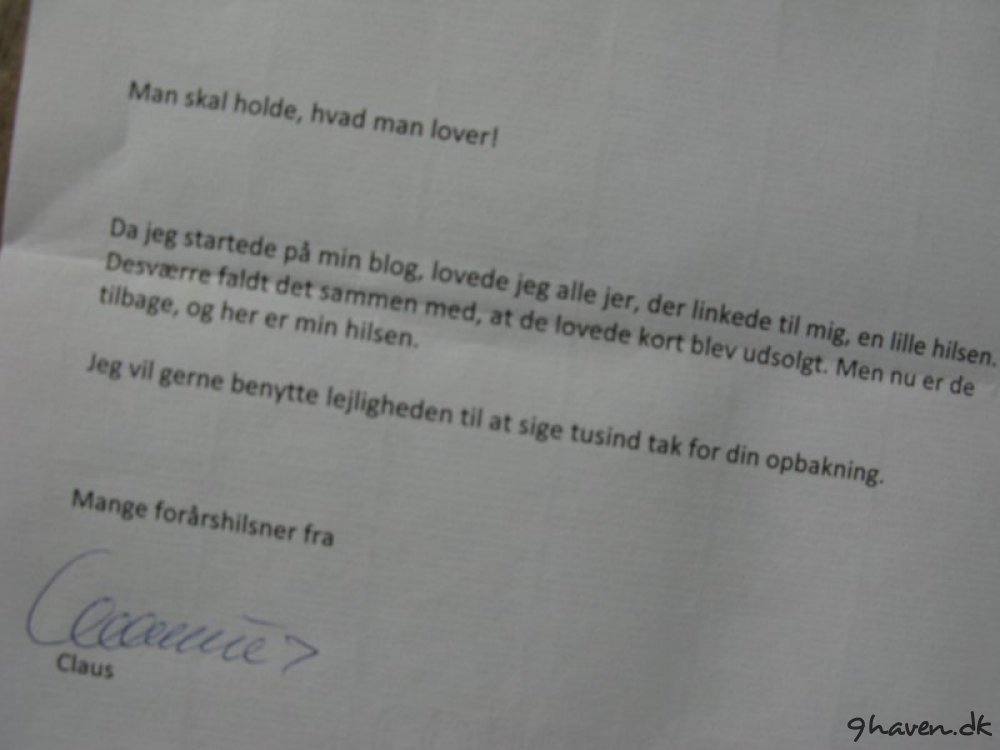 Man skal holde, hvad man lover!
Da jeg startede på min blog, lovede jeg alle jer, der linkede til mig, en lille hilsen.
Desværre faldt det sammen med, at de lovede kort blev udsolgt. Men nu er de
tilbage, og her er min hilsen.
Jeg vil gerne benytte lejligheden til at sige tusind tak for din opbakning.
Mange forårshilsner fra
Claus
9haven.dk